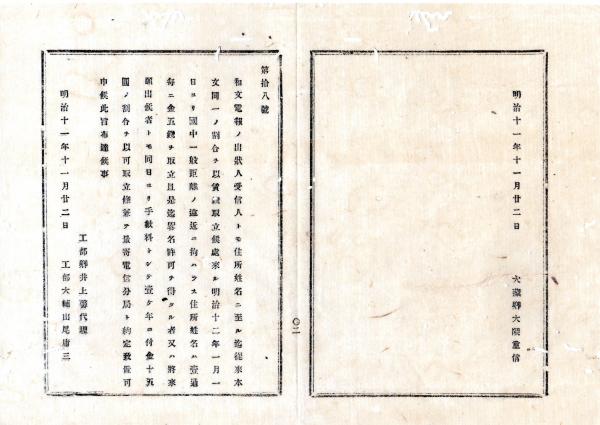 明治十一年十一月廿二日
大藏卿大隈重信
〇二
第拾八號
和文電報ノ出狀人受信人トモ住所姓名ニ至ル迄從來本
文同一ノ割合ヲ以賃錢取立候處來ル明治十二年一月一
日ヨリ國中一般距離ノ遠近ニ拘ハラス住所姓名ハ壹通
每ニ金五錢ヲ取立且是迄畧名許可ヲ得タル者又ハ將來
願出候者トモ同日ヨリ手數料トシテ壹ケ年ニ付金十五
圓ノ割合ヲ以可取立條兼テ最寄電信分局ト約定致置可
申候此旨布達候事
明治十一年十一月廿二日
工部卿井上馨代理
工部大輔山尾庸三